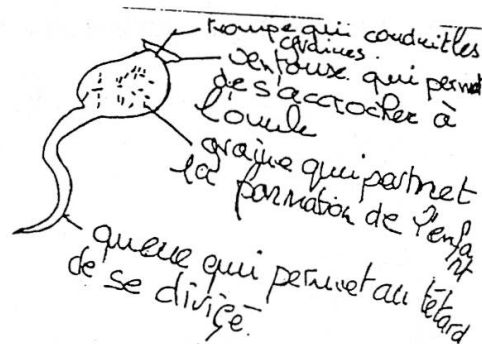 trompe qui conduit les
graines
ventouse qui permet
de s'accrocher à
l'ovule
graine qui permet
la formation de l'enfa
nt
queue qui permet au têtard
de se divigé.